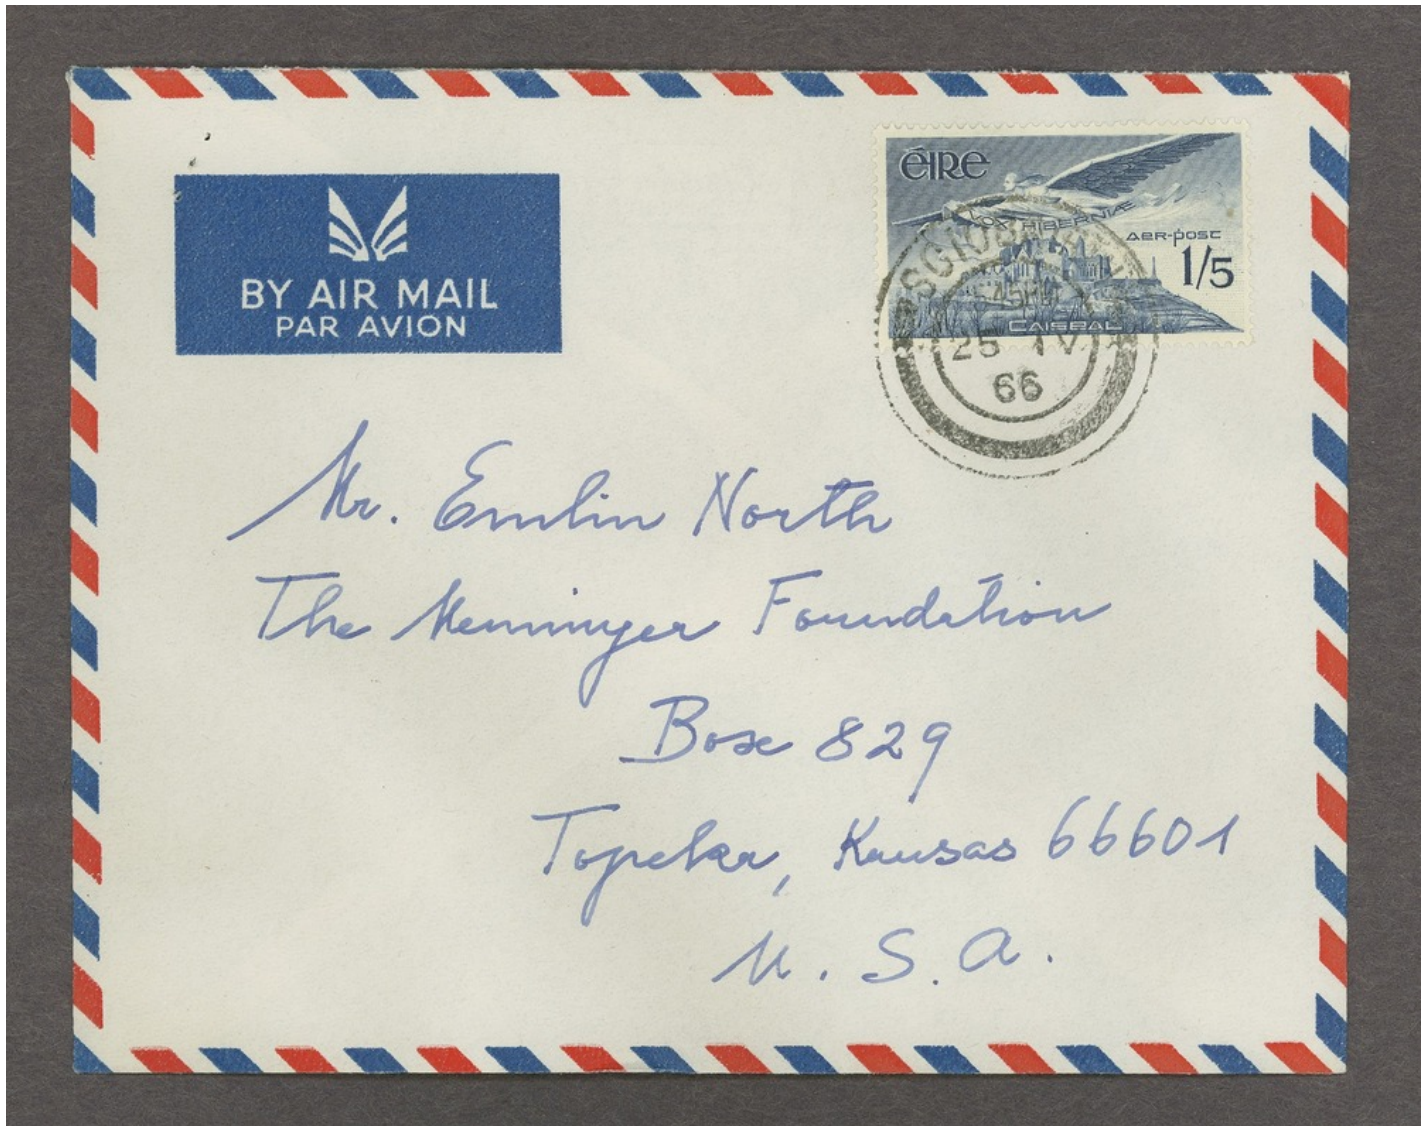 BY AIR MAIL
PAR AVION
éIRe
VOX HIBERNIÆ
AER-POST
1/5
CAISEAL
25 IV
66
Mr. Emlin North
The Menninger Foundation
Box 829
Topeka, Kansas 66601
U. S. A.